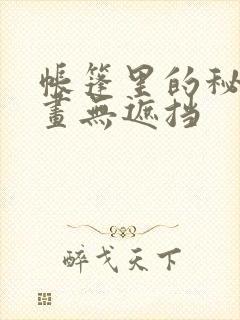 帳篷里的秘
畫無遮挡
醉戈天下